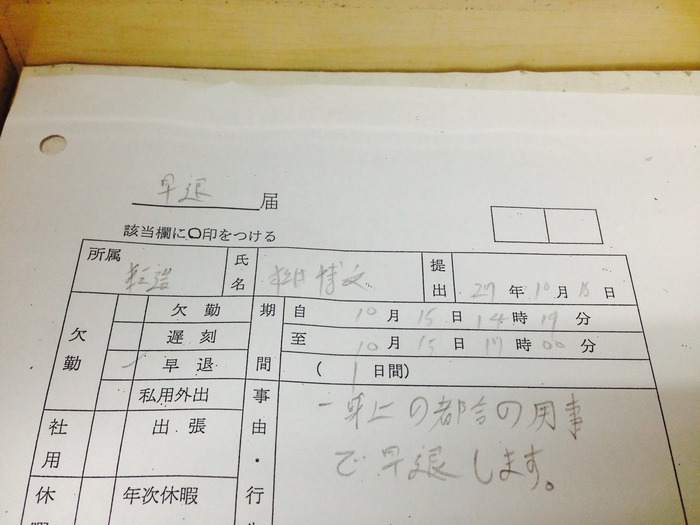 早退届
該当欄に〇印をつける
所属 製造 氏名 博文 提出 27年10月15日
欠勤 欠勤 期間 自 10月15日14時19分
遅刻 至 10月15日17時00分
早退 (1日間)
私用外出 事由・行 一身上の都合の用事
社用 出張 で早退します。
休暇 年次休暇